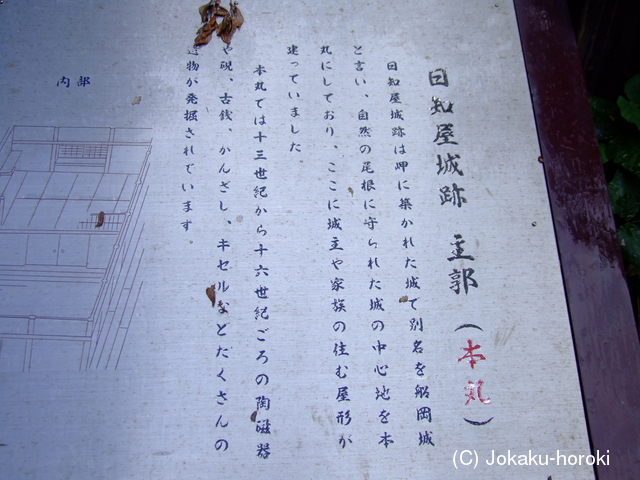 日知屋城跡 主郭（本丸）
日知屋城跡は岬に築かれた城で別名を船岡城
と言い、自然の尾根に守られた城の中心地を本
丸にしており、ここに城主や家族の住む屋形が
建っていました。
本丸では十三世紀から十六世紀ごろの陶磁器
や硯、古銭、かんざし、キセルなどたくさんの
遺物が発掘されています。
内部
(C) Jokaku-horoki